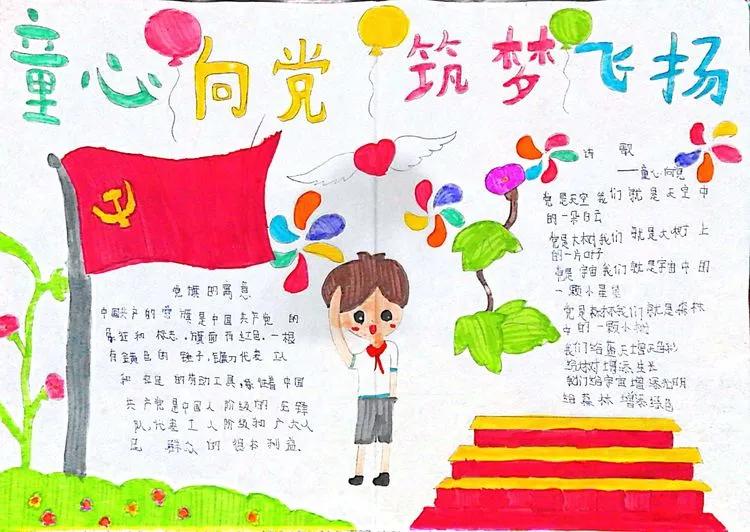 童心向党 筑梦飞扬
诗 歌
——童心向党
党是天空我们就是天空中
的一朵白云
党是大树我们就是大树上
的一片叶子
党是宇宙我们就是宇宙中的
一颗小星星
党是森林我们就是森林
中的一颗小树
我们给蓝天增添色彩
给树增添生长
我们给宇宙增添光明
给森林增添绿色
党旗的寓意
中国共产的党旗是中国共产党的
象征和标志.旗面为红色.一根
有金黄色的锤子,镰刀代表工人
和农民的劳动工具,象征着中国
共产党是中国人阶级的先锋
队,代表工人阶级和广大人
民群众的根本利益.